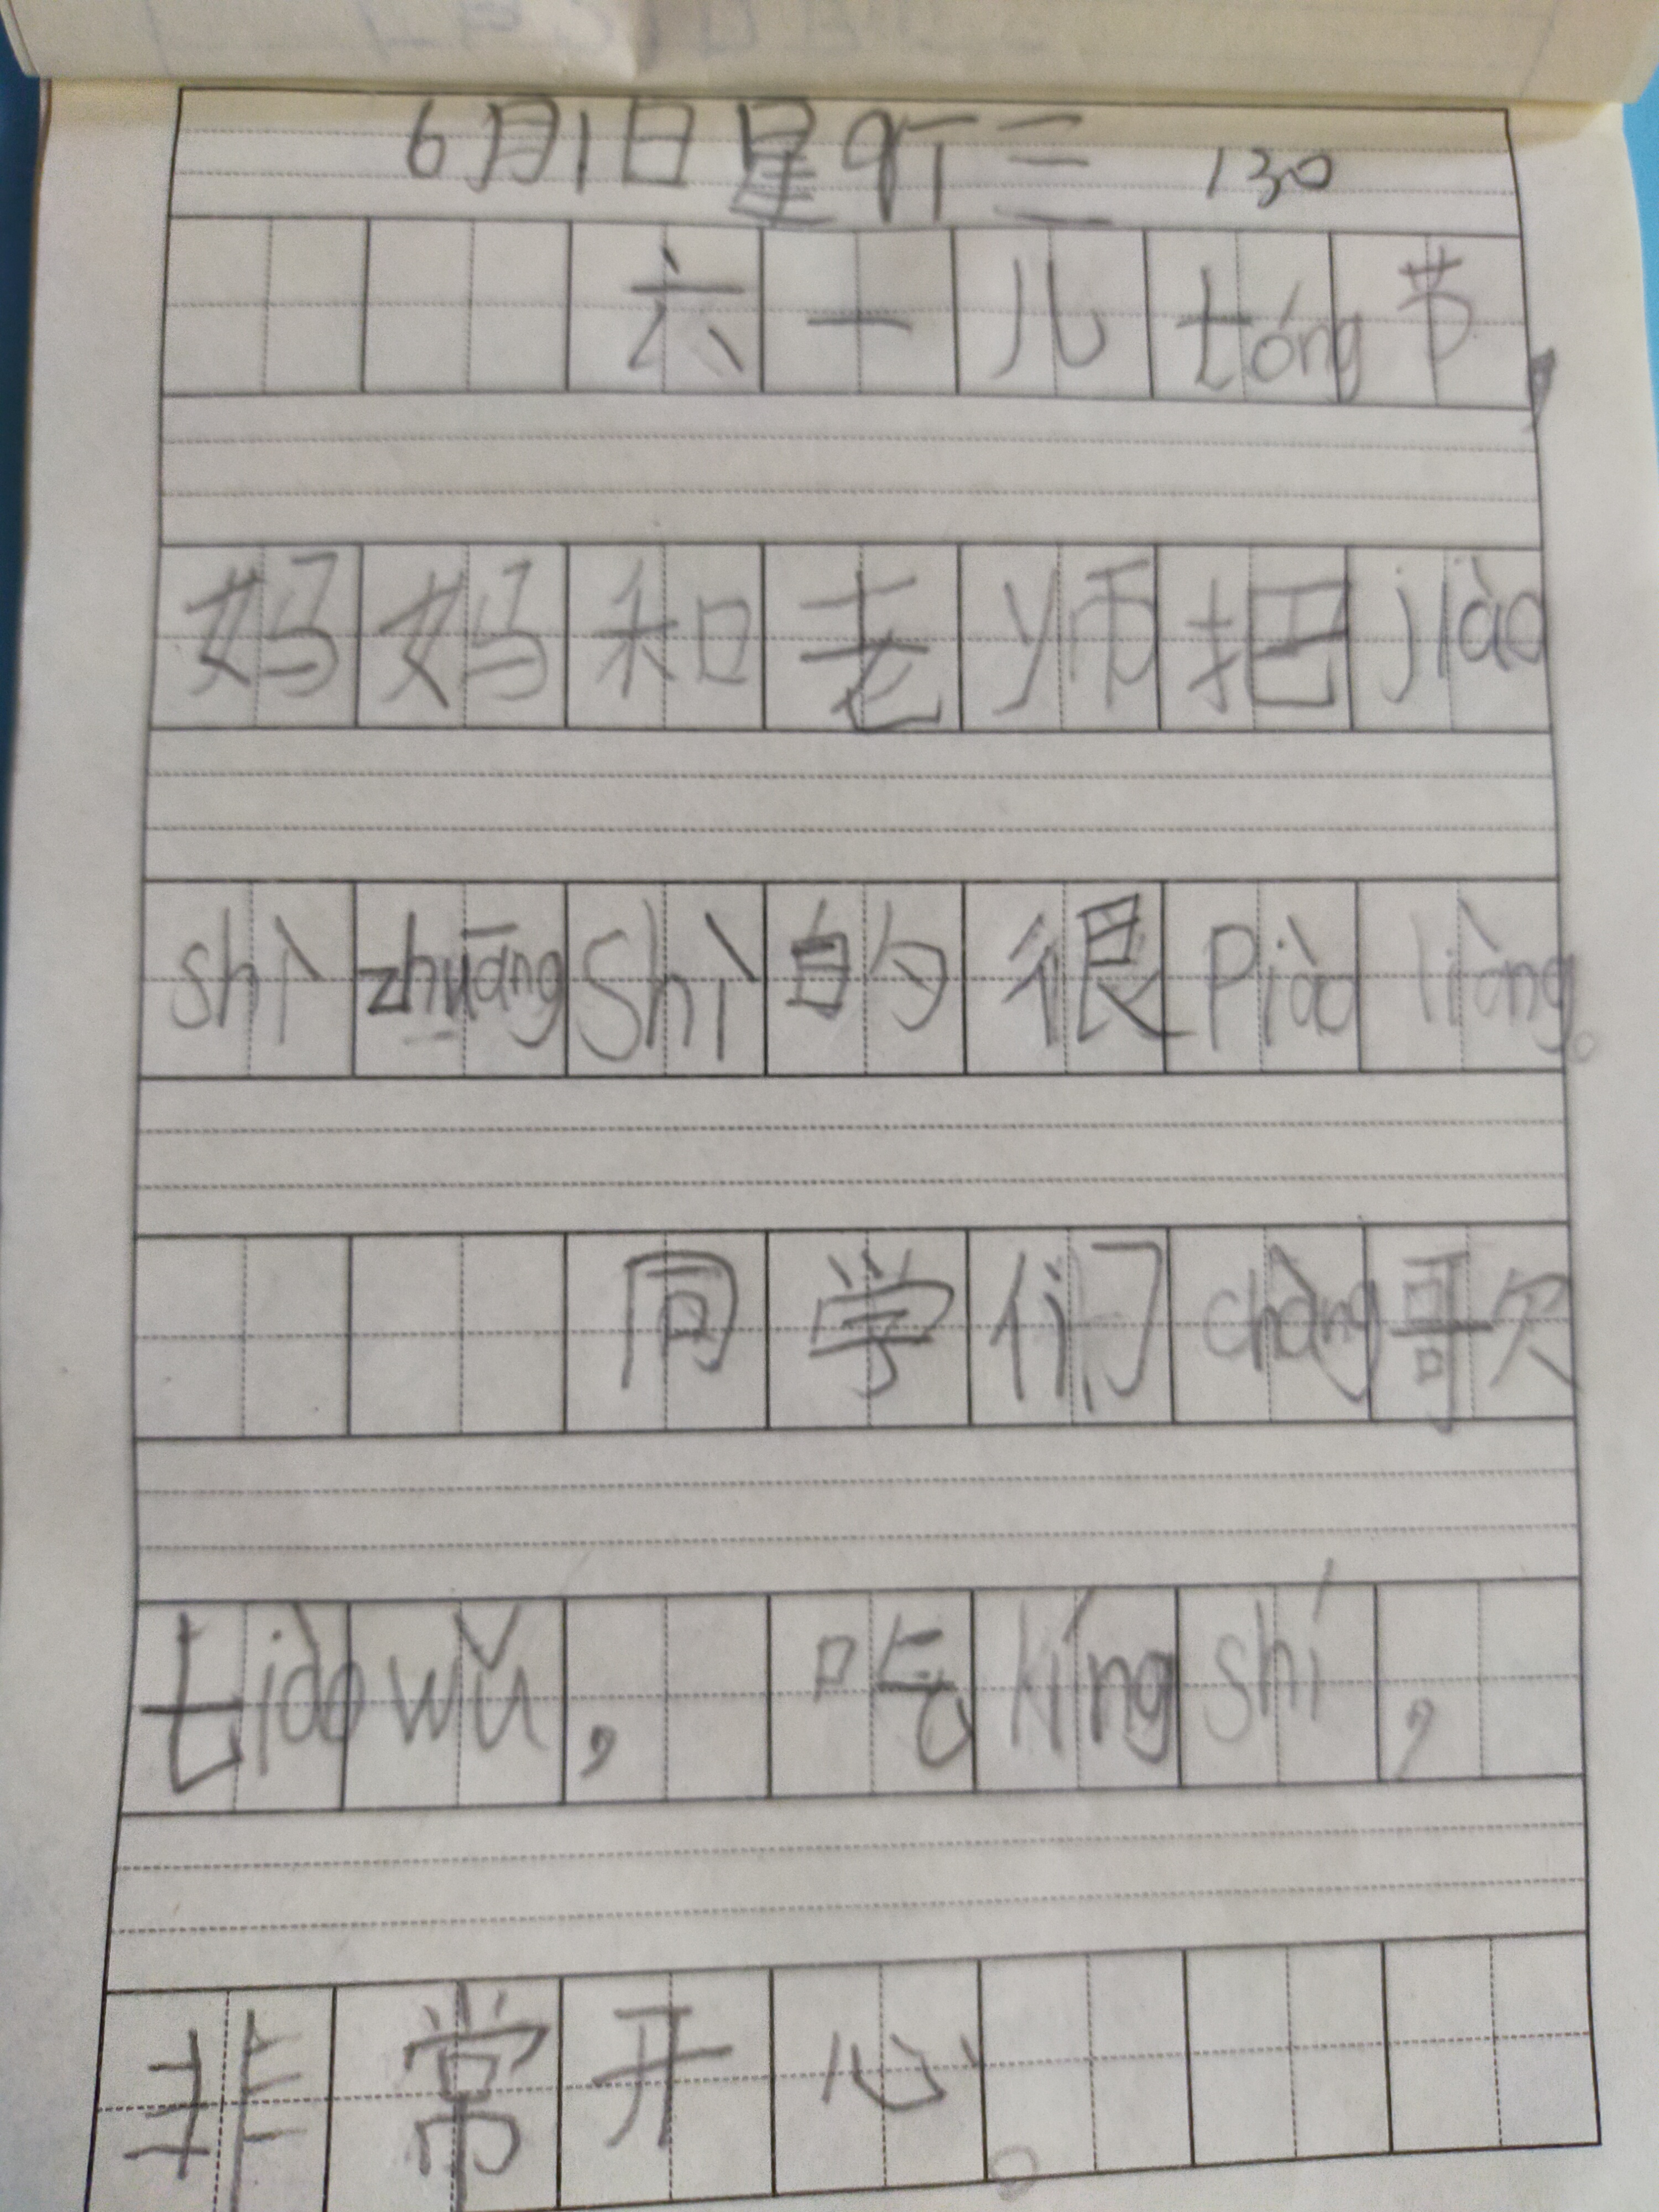 6月1日星期三 130
六一儿tóng节,
妈妈和老师把jiào
shì zhuāng shì的很piào liàng。
同学们chàng歌
tiào wǔ, 吃líng shí,
非常开心。